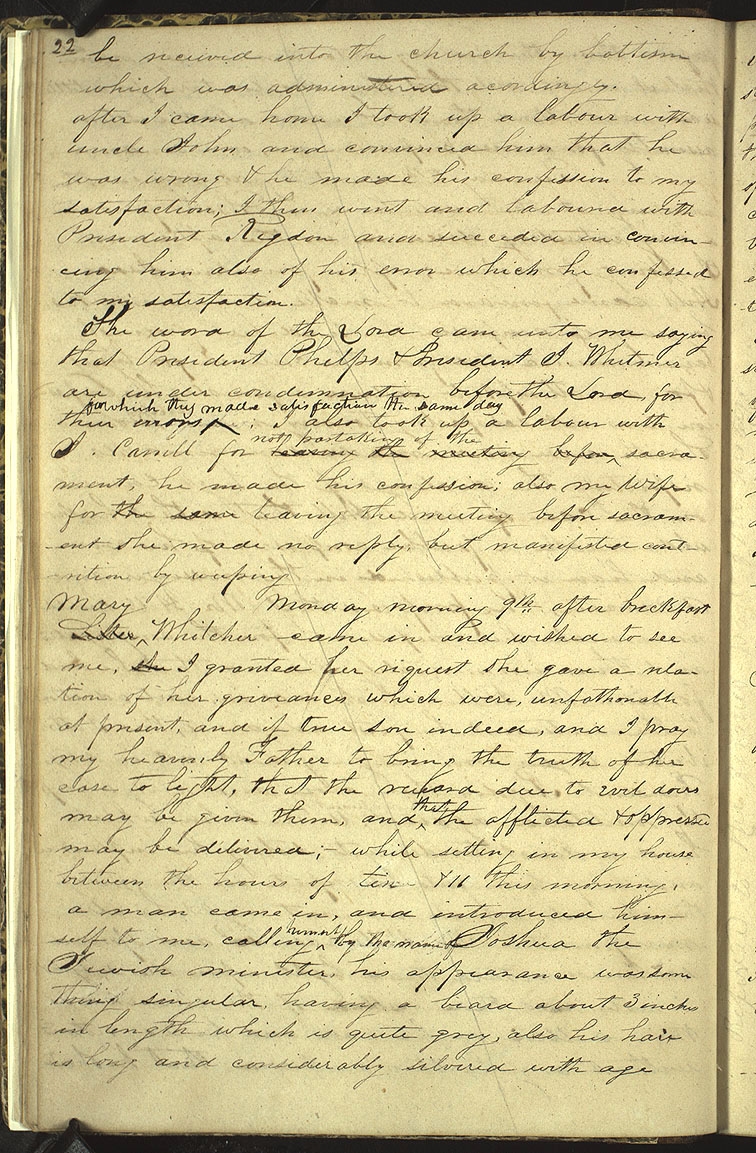 22
be received into the church by babtism
which was administered acordingly.
after I came home I took up a labour with
uncle John and convinced him that he
was wrong & he made his confession to my
satisfaction; I then went and laboured with
President Rigdon and succeded in convin-
cing him also of his error which he confessed
to my satisfaction.
The word of the Lord came unto me saying
that President Phelps & President J. Whitmer
are under condemnation before the Lord, for
for which they made satisfaction the same day
their errors ; I also took up a labour with
not partaking of the
J. Carrill for leaving the meeting before sacra
ment, he made his confession; also my wife
for the same leaving the meeting before sacram-
ent she made no reply, but manifested cont-
rition by weeping
Mary Monday morning 9th after breckfast
Sister Whitcher came in and wished to see
me, she I granted her request she gave a rela-
tion of her griveances which were, unfathonable
at present, and if true sore indeed, and I pray
my heavenly Father to bring the truth of her
case to light, that the reward due to evil doers
may be given them, and
that
the afflicted & oppressed
may be delivered;- while setting in my house
between the hours of ten & 11 this morning,
a man came in, and introduced him-
self to me, calling
himself
by the name of Joshua the
Jewish minister, his appearance was some
thing singular, having a beard about 3 inches
in length which is quite grey, also his hair
is long and considerably silvered with age